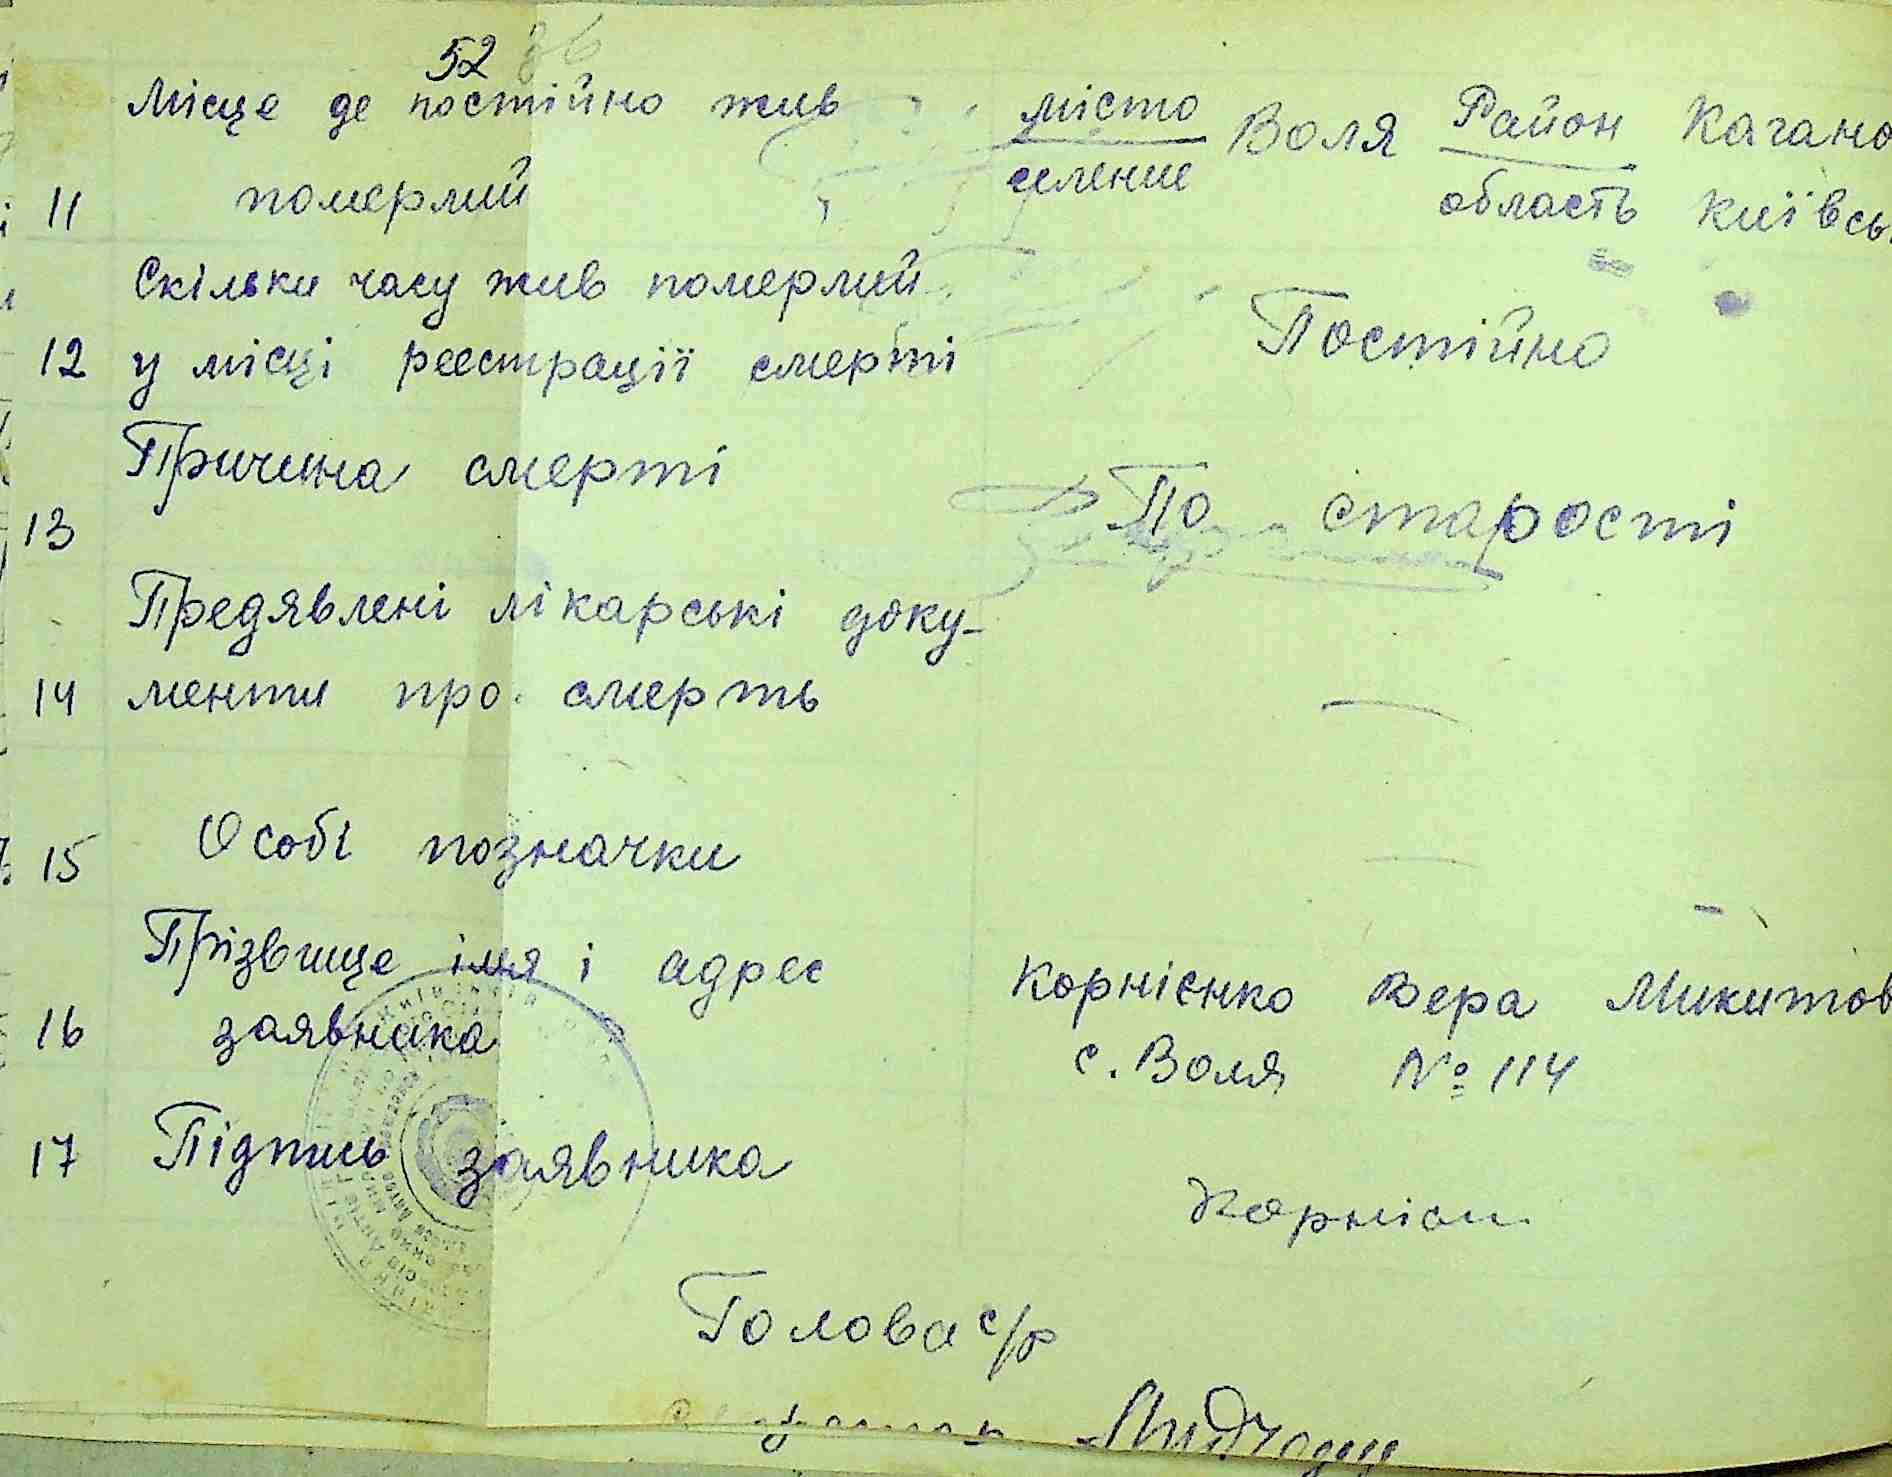 52 36
Місце де постійно жив місто Воля Район Кагано
11 померлий селение область київсь
Скільки часу жив померлий
12 у місці реестрації смерті Постійно
Причина смерті
13 По старості
Предявлені лікарські доку-
14 менти про смерть —
15 Особі позначки —
Прізвище імя і адрес Корнієнко Вера Микитов
16 заявника с. Воля № 114
17 Підпись заявника
Голова с/р